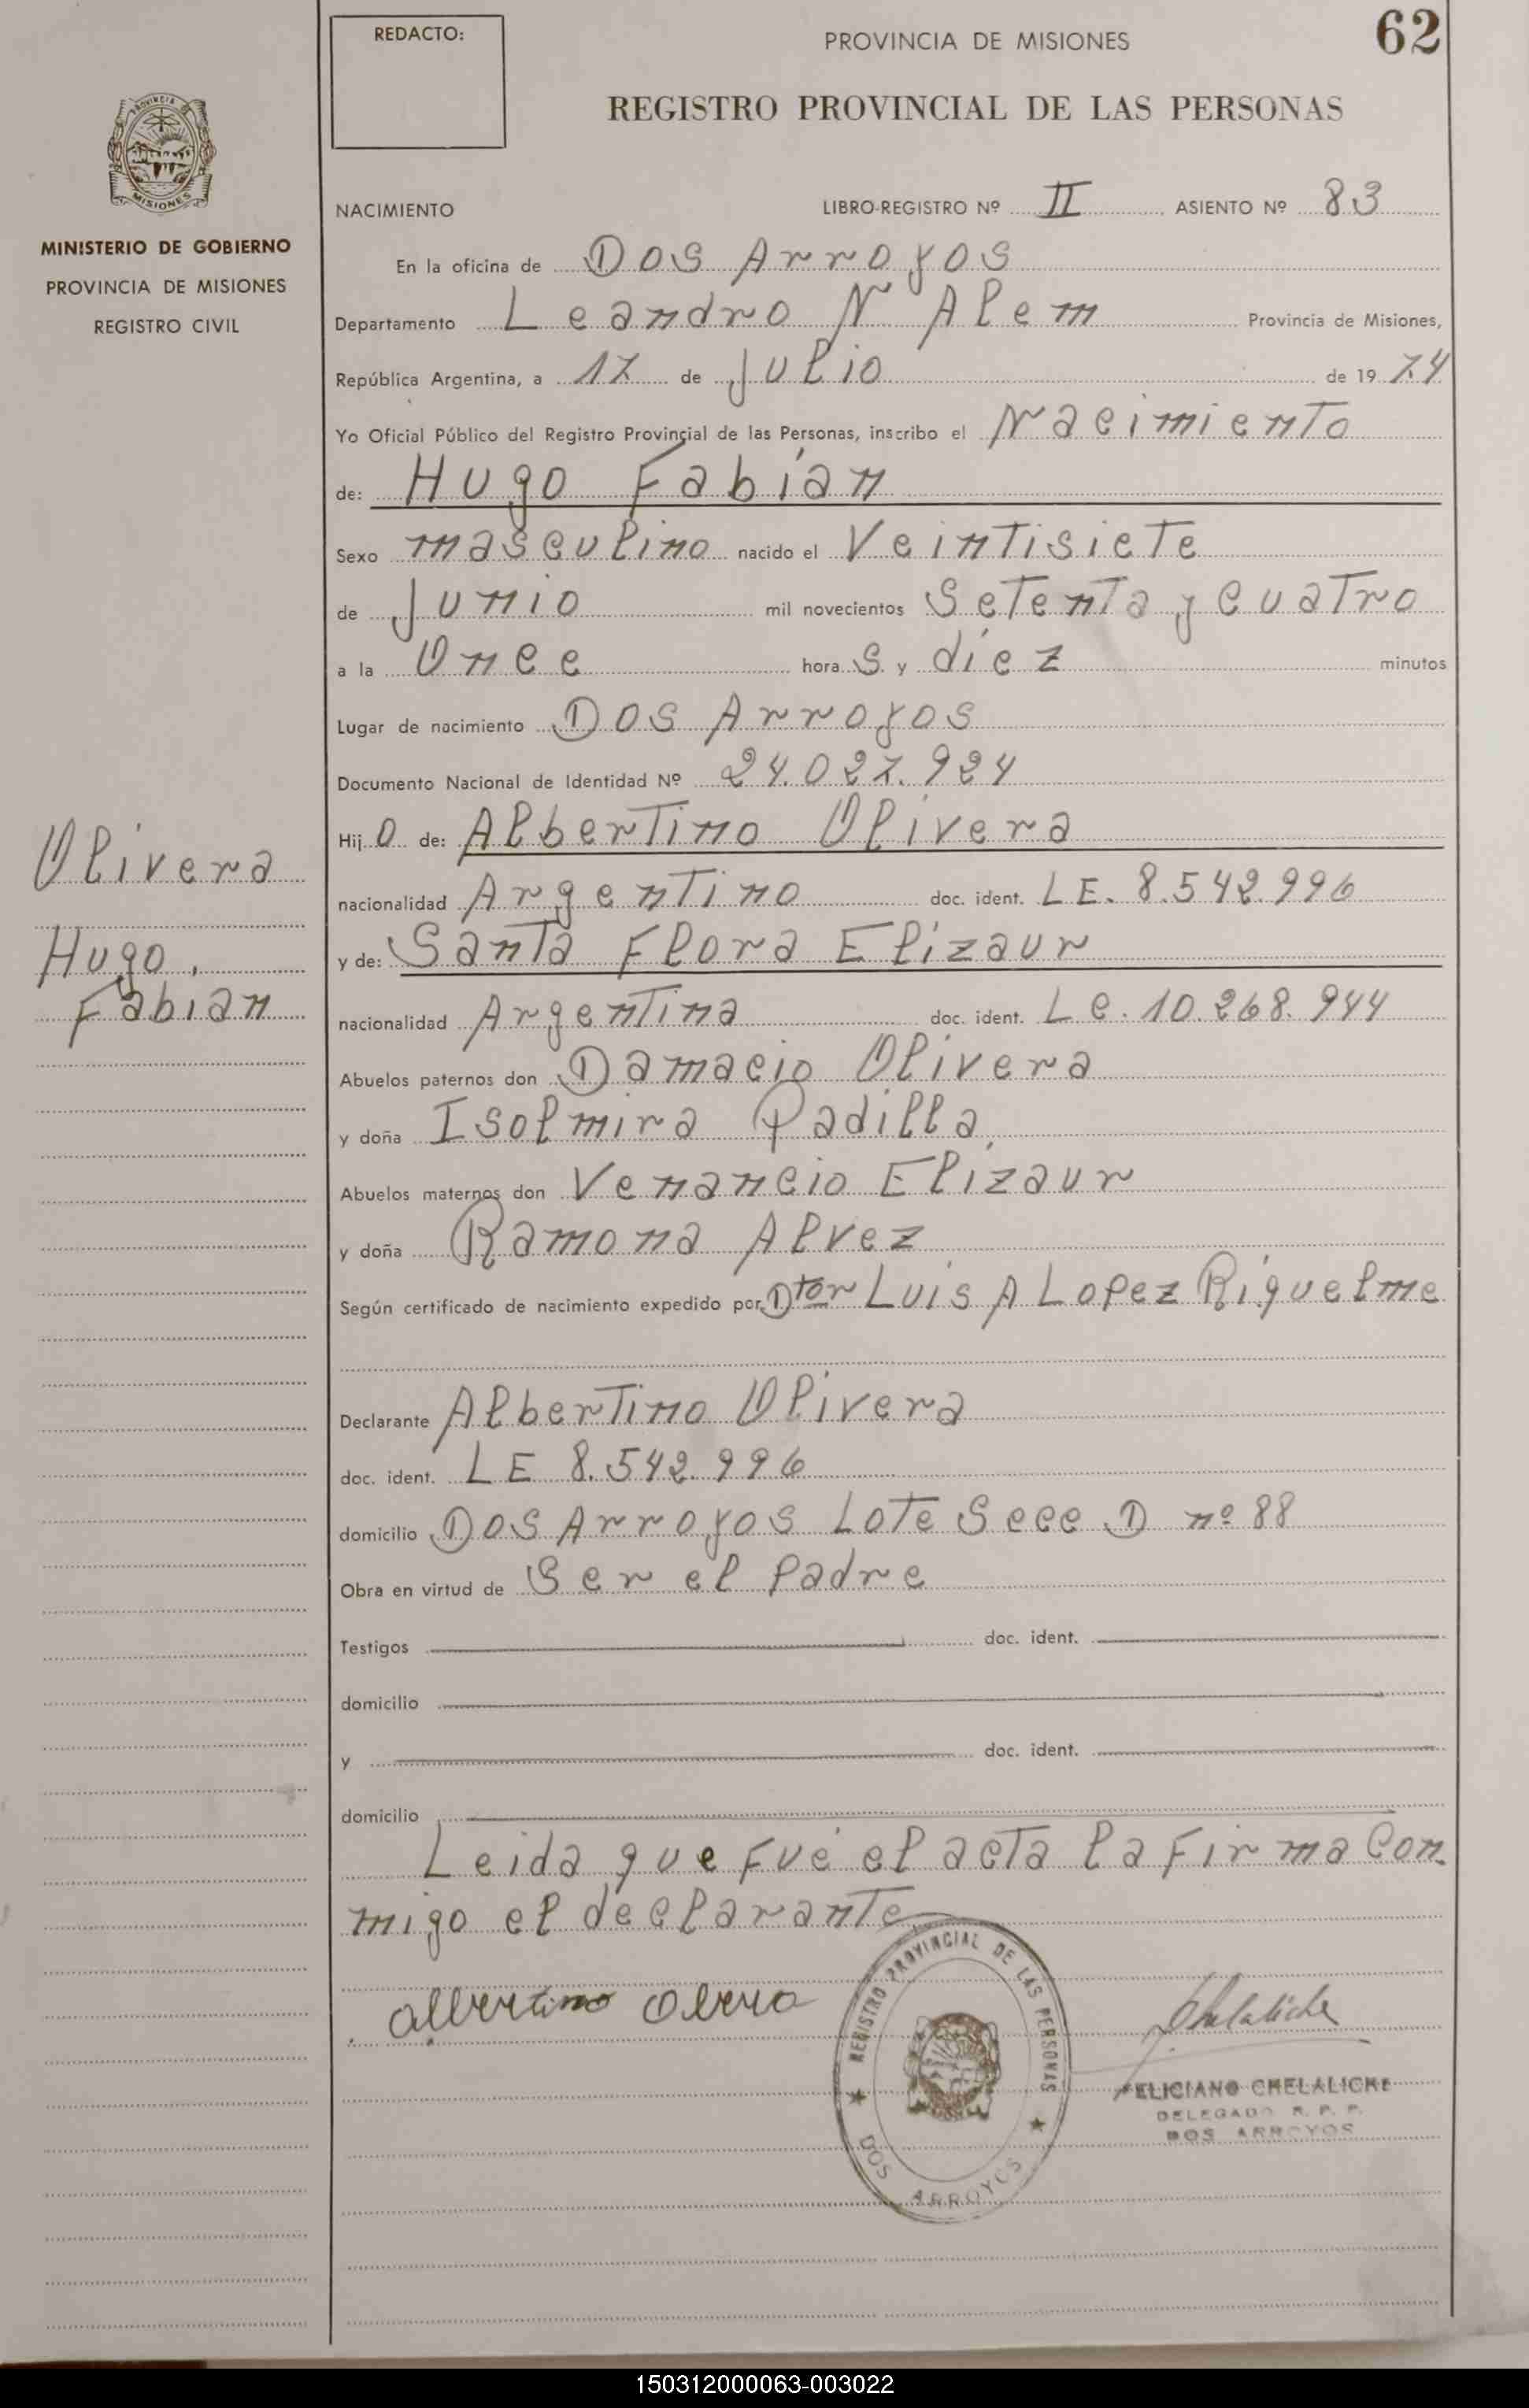 REDACTO:
PROVINCIA DE MISIONES
62
REGISTRO PROVINCIAL DE LAS PERSONAS
PROVINCIA
MISIONES
MINISTERIO DE GOBIERNO
PROVINCIA DE MISIONES
REGISTRO CIVIL
NACIMIENTO LIBRO-REGISTRO Nº II ASIENTO Nº 83
En la oficina de Dos Arroyos
Departamento Leandro N Alem Provincia de Misiones,
República Argentina, a 17 de Julio de 19 74
Yo Oficial Público del Registro Provincial de las Personas, inscribo el Nacimiento
de: Hugo Fabián
Sexo masculino nacido el Veintisiete
de Junio mil novecientos Setenta y cuatro
a la Once hora s y diez minutos
Lugar de nacimiento Dos Arroyos
Documento Nacional de Identidad Nº 24.027.924
Hij o de: Albertino Olivera
nacionalidad Argentino doc. ident. LE. 8.542.996
y de: Santa Flora Elizaur
nacionalidad Argentina doc. ident. Lc. 10.268.944
Abuelos paternos don Damacio Olivera
y doña Isolmira Padilla
Abuelos maternos don Venancio Elizaur
y doña Ramona Alvez
Según certificado de nacimiento expedido por Dtor Luis A Lopez Riquelme
Declarante Albertino Olivera
doc. ident. LE 8.542.996
domicilio Dos Arroyos Lote Secc D nº 88
Obra en virtud de Ser el Padre
Testigos doc. ident.
domicilio
y doc. ident.
domicilio
Leida que fué el acta la firma con
migo el declarante
Olivera
Hugo
Fabian
albertino olvera
REGISTRO PROVINCIAL DE LAS PERSONAS
DOS ARROYOS
Chelaliche
FELICIANO CHELALICHE
DELEGADO R. P. P.
DOS ARROYOS
150312000063-003022